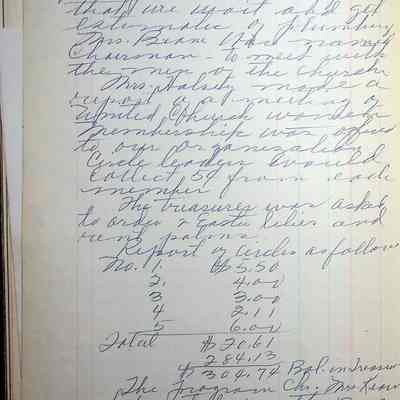 that are worst and get
estimates of plumbing
Mrs. Beane was named
Chairman - to meet with
the men of the church.
Mrs. Halsey made a
report of a meeting of
United Church women
membership was offered
to our Organization
Circle leaders would
collect 5¢ from each
member
The treasures was asked
to order 2 Easter lilies and
rent palms.
Report of Circles as follow
No. 1. $5.50
2. 4.00
3 3.00
4 2.11
5 6.00
Total $20.61
284.13
$304.74 Bal. in Treasur
The Program Ch. Mrs.